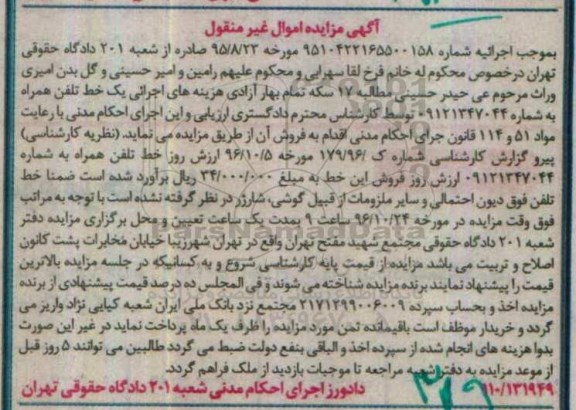 آگهی مزایده اموال غیر منقول
بموجب اجرائیه شماره ۹۵۱۰۴۲۲۱۶۵۵۰۰۱۵۸ مورخه ۹۵/۸/۲۳ صادره از شعبه ۲۰۱ دادگاه حقوقی
تهران درخصوص محکوم له خانم فرخ لقا سهرابی و محکوم علیهم رامین و امیر حسینی و گل بدن امیری
وراث مرحوم عی حیدر حسینی مطالبه ۱۷ سکه تمام بهار آزادی هزینه های اجرائی یک خط تلفن همراه
به شماره ۰۹۱۲۱۳۴۷۰۴۴ توسط کارشناس محترم دادگستری ارزیابی و این اجرای احکام مدنی با رعایت
مواد ۵۱ و ۱۱۴ قانون جرای احکام مدنی اقدام به فروش آن از طریق مزایده می نماید. (نظریه کارشناسی)
پیرو گزارش کارشناسی شماره ک /۱۷۹/۹۶ مورخه ۹۶/۱۰/۵ ارزش روز خط تلفن همراه به شماره
۰۹۱۲۱۳۴۷۰۴۴ ارزش روز فروش این خط به مبلغ ۳۴/۰۰۰/۰۰۰ ریال برآورد شده است ضمنا خط
تلفن فوق دیون احتمالی و سایر ملزومات از قبیل گوشی، شارژر در نظر گرفته نشده است با توجه به مراتب
فوق وقت مزایده در مورخه ۹۶/۱۰/۲۴ ساعت ۹ بمدت یک ساعت تعیین و محل برگزاری مزایده دفتر
شعبه ۲۰۱ دادگاه حقوقی مجتمع شهید مفتح تهران واقع در تهران شهرزیبا خیابان مخابرات پشت کانون
اصلاح و تربیت می باشد مزایده از قیمت پایه کارشناسی شروع و به کسانیکه در جلسه مزایده بالاترین
قیمت را پیشنهاد نمایند برنده مزایده شناخته می شوند و فی المجلس ده درصد قیمت پیشنهادی از برنده
مزایده اخذ و بحساب سپرده ۲۱۷۱۲۹۹۰۰۶۰۰۹ مجتمع نزد بانک ملی ایران شعبه کیایی نژاد واریز می
گردد و خریدار موظف است باقیمانده ثمن مورد مزایده را ظرف یک ماه پرداخت نماید در غیر این صورت
بدوا هزینه های انجام شده از سپرده اخذ و الباقی بنفع دولت ضبط می گردد طالبین می توانند ۵ روز قبل
از موعد مزایده به دفتر شعبه مراجعه تا موجبات بازدید از ملک فراهم گردد.
۱۱۰/۱۳۱۹۴۹ دادورز اجرای احکام مدنی شعبه ۲۰۱ دادگاه حقوقی تهران